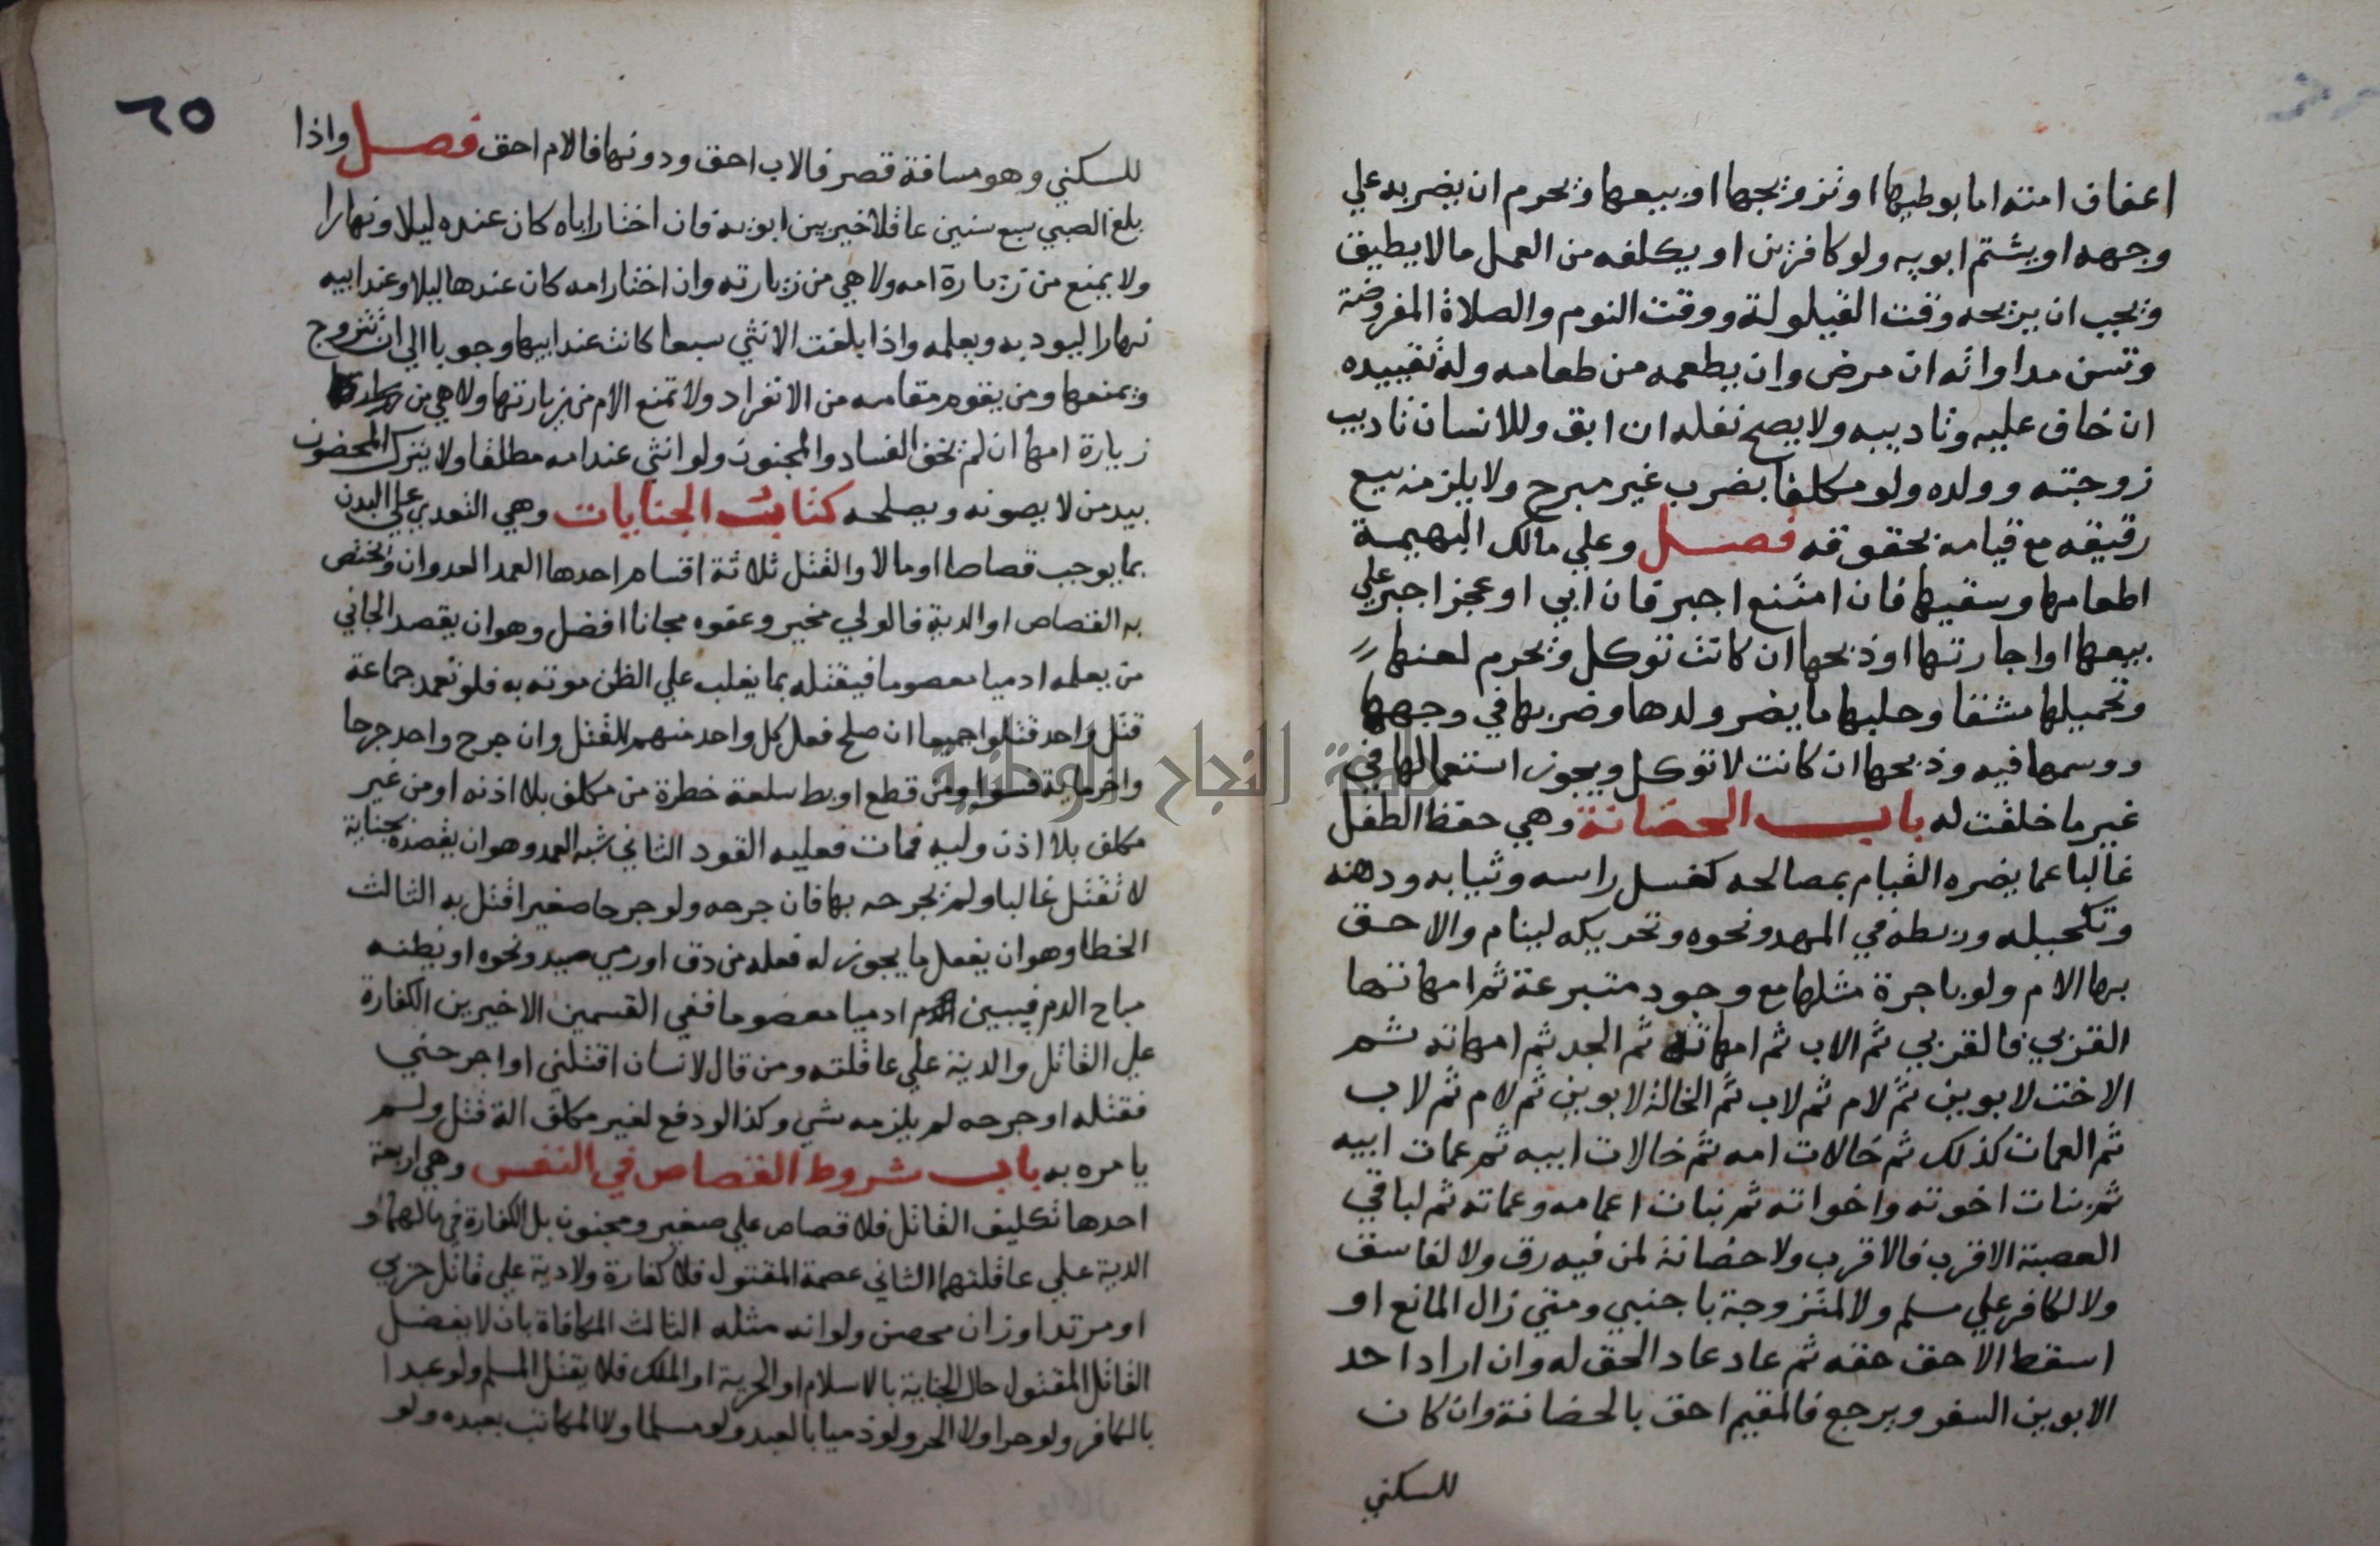 اعفاف امته اما بوطيها او تزويجها او بيعها ويحرم ان يضربه علي
وجهه او يشتم ابويه ولو كافرين او يكلفه من العمل مالا يطيق
ويجب ان يريحه وقت القيلولة ووقت النوم والصلاة المفروضة
وتسن مداواته ان مرض وان يطعمه من طعامه وله تقييده
ان خاف عليه وتاديبه ولا يصح نفله ان ابق وللانسان تاديب
زوجته وولده ولو مكلفا بضرب غير مبرح ولا يلزمه بيع
رقيقه مع قيامه بحقوقه فصل وعلي مالك البهيمة
اطعامها وسقيها فان امتنع اجبر فان ابي او عجز اجبر علي
بيعها او اجارتها او ذبحها ان كانت توكل ويحرم لعنها
وتحميلها مشقا وحلبها ما يضر ولدها وضربها في وجهها
ووسمها فيه وذبحها ان كانت لا توكل ويجوز استعمالها في
غير ما خلقت له باب الحضانة وهي حفظ الطفل
غالبا عما يضره القيام بمصالحه كغسل راسه وثيابه ودهنه
وتكحيله وربطه في المهد ونحوه وتحريكه لينام والاحق
بها الام ولو باجرة مثلها مع وجود متبرعة ثم امهاتها
القربي فالقربي ثم الاب ثم امهاته ثم الجد ثم امهاته ثم
الاخت لابوين ثم لام ثم لاب ثم الخالة لابوين ثم لام ثم لاب
ثم العمات كذلك ثم خالات امه ثم خالات ابيه ثم عمات ابيه
ثم بنات اخوته واخواته ثم بنات اعمامه وعماته ثم لباقي
العصبة الاقرب فالاقرب ولا حضانة لمن فيه رق ولا لفاسق
ولا لكافر علي مسلم ولا لمتزوجة باجنبي ومتي زال المانع او
اسقط الاحق حقه ثم عاد عاد الحق له وان اراد احد
الابوين السفر ويرجع فالمقيم احق بالحضانة وان كان
للسكني
٦٥
للسكني وهو مسافة قصر فالاب احق ودونها فالام احق فصل واذا
بلغ الصبي سبع سنين عاقلا خير بين ابويه فان اختار اباه كان عنده ليلا ونهارا
ولا يمنع من زيارة امه ولا هي من زيارته وان اختار امه كان عندها ليلا وعند ابيه
نهارا ليودبه ويعلمه واذا بلغت الانثي سبعا كانت عند ابيها وجوبا الي ان تتزوج
ويمنعها ومن يقوم مقامه من الانفراد ولا تمنع الام من زيارتها ولا هي من
زيارة امها ان لم يخف الفساد والمجنون ولو انثي عند امه مطلقا ولا يترك المحضون
بيد من لا يصونه ويصلحه كتاب الجنايات وهي التعدي علي البدن
بما يوجب قصاصا او مالا والقتل ثلاثة اقسام احدها العمد العدوان ويختص
به القصاص او الدية فالولي مخير وعفوه مجانا افضل وهو ان يقصد الجاني
من يعلمه ادميا معصوما فيقتله بما يغلب علي الظن موته به فلو تعمد جماعة
قتل واحد قتلوا جميعا ان صلح فعل كل واحد منهم للقتل وان جرح واحد جرحا
واخر ماية فسوا ومن قطع او بط سلعة خطرة من مكلف بلا اذنه او من غير
مكلف بلا اذن وليه فمات فعليه القود الثاني شبه العمد وهو ان يقصده بجناية
لا تقتل غالبا ولم يجرحه بها فان جرحه ولو جرحا صغيرا قتل به الثالث
الخطا وهو ان يفعل ما يجوز له فعله من دق او رمي صيد ونحوه او يظنه
مباح الدم فيبين ادميا معصوما ففي القسمين الاخيرين الكفارة
علي القاتل والدية علي عاقلته ومن قال لانسان اقتلني او اجرحني
فقتله او جرحه لم يلزمه شي وكذا لو دفع لغير مكلف الة قتل ولم
يامره به باب شروط القصاص في النفس وهي اربعة
احدها تكليف القاتل فلا قصاص علي صغير ومجنون بل الكفارة في مالهما و
الدية علي عاقلتهما الثاني عصمة المقتول فلا كفارة ولا دية علي قاتل حربي
او مرتد او زان محصن ولو انه مثله الثالث المكافاة بان لا يفضل
القاتل المقتول حال الجناية بالاسلام او الحرية او الملك فلا يقتل المسلم ولو عبدا
بالكافر ولو حرا ولا الحر ولو ذميا بالعبد ولو مسلما ولا المكاتب بعبده ولو
النجاح الوطنية